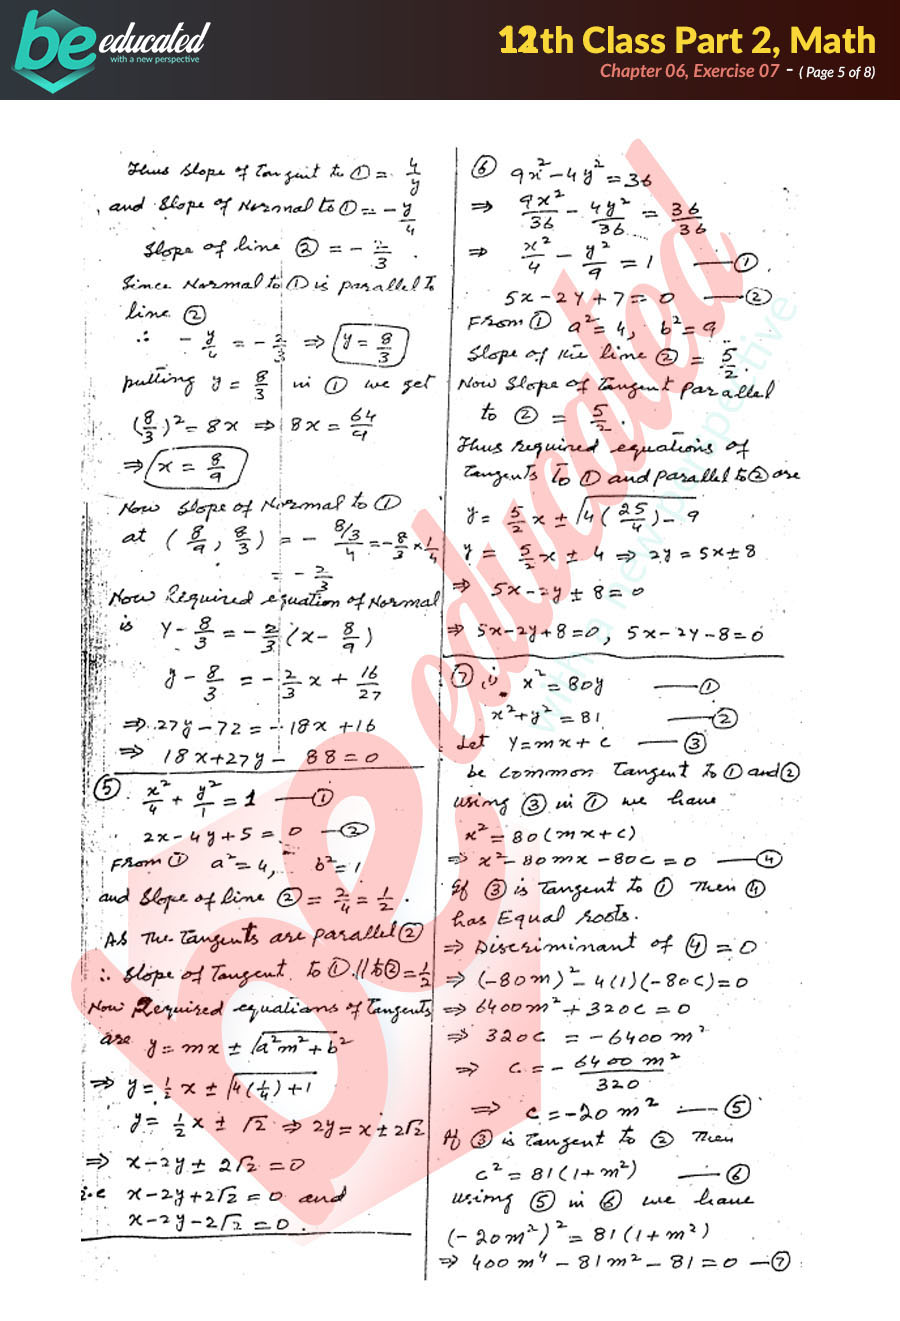 be educated
with a new perspective
12th Class Part 2, Math
Chapter 06, Exercise 07 - ( Page 5 of 8)
Thus slope of Tangent to ① = 4/y
and Slope of Normal to ① = - y/4
Slope of line ② = - 2/3 .
Since Normal to ① is parallel to
line ②
∴ - y/4 = - 2/3 ⇒ y = 8/3
putting y = 8/3 in ① we get
(8/3)² = 8x ⇒ 8x = 64/9
⇒ x = 8/9
Now Slope of Normal to ①
at ( 8/9 , 8/3 ) = - (8/3)/4 = - 8/3 × 1/4
= - 2/3
Now Required equation of Normal
is y - 8/3 = - 2/3 (x - 8/9)
y - 8/3 = - 2/3 x + 16/27
⇒ 27y - 72 = - 18x + 16
⇒ 18x + 27y - 88 = 0
⑤ x²/4 + y²/1 = 1 — ①
2x - 4y + 5 = 0 — ②
From ① a² = 4, b² = 1
and Slope of line ② = 2/4 = 1/2 .
As The Tangents are parallel ②
∴ Slope of Tangent to ① // to ② = 1/2
Now Required equations of Tangents
are y = mx ± √(a²m² + b²)
⇒ y = 1/2 x ± √(4(1/4) + 1)
y = 1/2 x ± √2 ⇒ 2y = x ± 2√2
⇒ x - 2y ± 2√2 = 0
i.e x - 2y + 2√2 = 0 and
x - 2y - 2√2 = 0 .
⑥ 9x² - 4y² = 36
⇒ 9x²/36 - 4y²/36 = 36/36
⇒ x²/4 - y²/9 = 1 — ①
5x - 2y + 7 = 0 — ②
From ① a² = 4, b² = 9
Slope of the line ② = 5/2 .
Now Slope of Tangent parallel
to ② = 5/2 .
Thus required equations of
Tangents to ① and parallel to ② are
y = 5/2 x ± √(4(25/4) - 9
y = 5/2 x ± 4 ⇒ 2y = 5x ± 8
⇒ 5x - 2y ± 8 = 0
⇒ 5x - 2y + 8 = 0 , 5x - 2y - 8 = 0
⑦ i) x² = 80y — ①
x² + y² = 81 — ②
Let y = mx + c — ③
be common Tangent to ① and ②
using ③ in ① we have
x² = 80(mx + c)
⇒ x² - 80mx - 80c = 0 — ④
If ③ is Tangent to ① Then ④
has Equal roots.
⇒ Discriminant of ④ = 0
⇒ (-80m)² - 4(1)(-80c) = 0
⇒ 6400m² + 320c = 0
⇒ 320c = - 6400m²
⇒ c = - 6400m²/320
⇒ c = -20m² — ⑤
If ③ is Tangent to ② Then
c² = 81(1 + m²) — ⑥
using ⑤ in ⑥ we have
(-20m²)² = 81(1 + m²)
⇒ 400m⁴ - 81m² - 81 = 0 — ⑦
be educated
with a new perspective